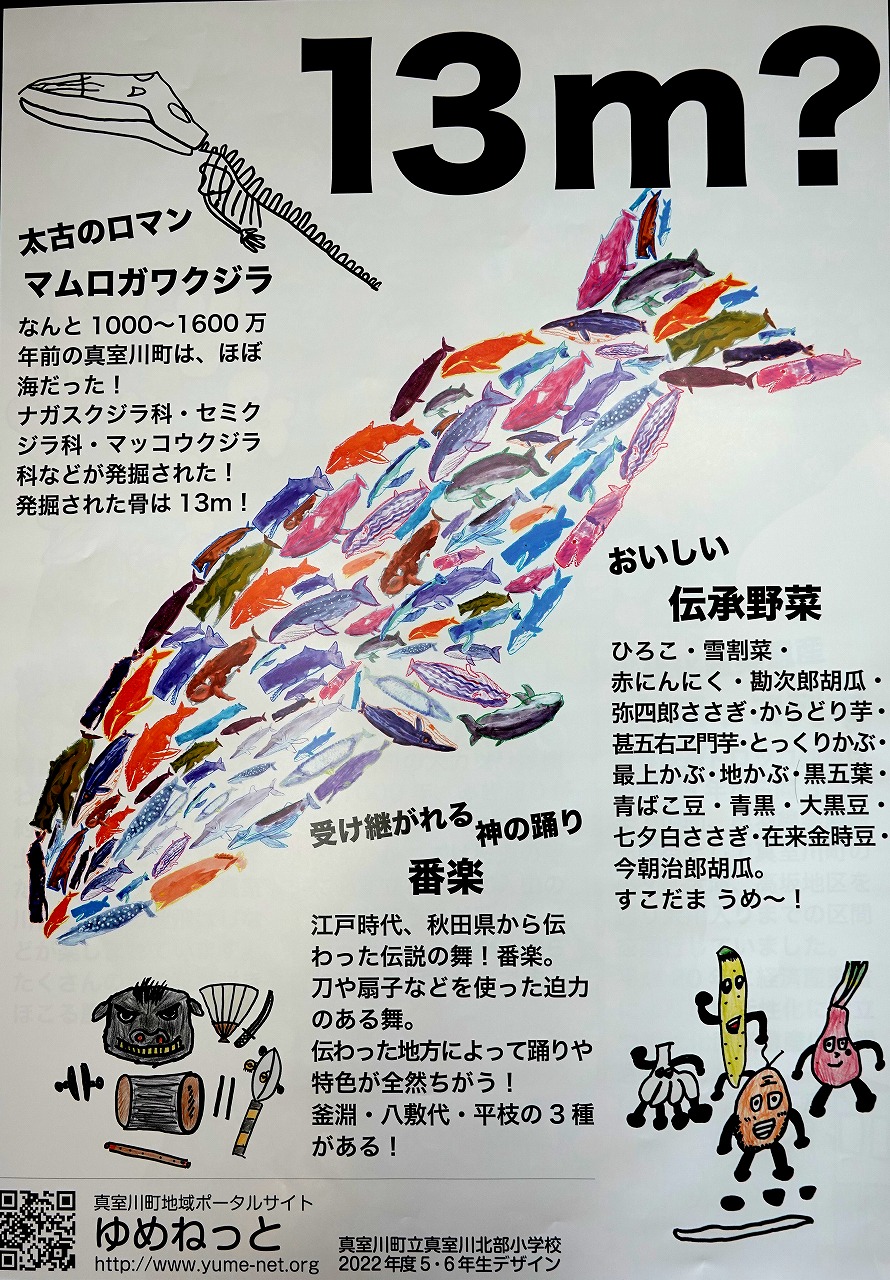 13m?
太古のロマン
マムロガワクジラ
なんと1000〜1600万
年前の真室川町は、ほぼ
海だった！
ナガスクジラ科・セミク
ジラ科・マッコウクジラ
科などが発掘された！
発掘された骨は13m！
おいしい
伝承野菜
ひろこ・雪割菜・
赤にんにく・勘次郎胡瓜・
弥四郎ささぎ・からどり芋・
甚五右ヱ門芋・とっくりかぶ・
最上かぶ・地かぶ・黒五葉・
青ばこ豆・青黒・大黒豆・
七夕白ささぎ・在来金時豆・
今朝治郎胡瓜。
すこだま うめ〜！
受け継がれる神の踊り
番楽
江戸時代、秋田県から伝
わった伝説の舞！番楽。
刀や扇子などを使った迫力
のある舞。
伝わった地方によって踊りや
特色が全然ちがう！
釜淵・八敷代・平枝の3種
がある！
真室川町地域ポータルサイト
ゆめねっと
http://www.yume-net.org
真室川町立真室川北部小学校
2022年度5・6年生デザイン